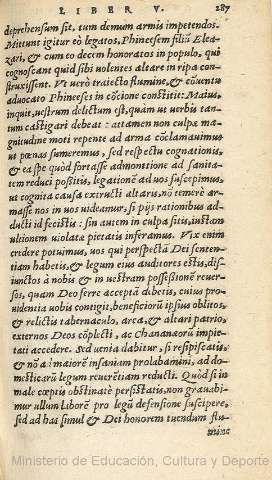 LIBER V. 287
deprehensum sit, tum demum armis impetendos.
Mittunt igitur eò legatos, Phineesem filiũ Elea-
zari, & cum eo decem honoratos in populo, qui
cognoscant quid sibi uolentes altare in ripa con-
struxissent. Vt uerò traiecto flumine, & cõuentu
aduocato Phineeses in cõcione constitit: Maius,
inquit, uestrum delictum est, quàm ut uerbis tan-
tum castigari debeat: attamen non culpæ ma-
gnitudine moti repente ad arma cõclamauimus
ut pœnas sumeremus, sed respectu cognationis,
& ea spe quòd fortasse admonitione ad sanita-
tem reduci possitis, legationẽ ad uos suscepimus,
ut cognita causa extructi altaris, nõ temerè ar-
masse nos in uos uideamur, si pijs rationibus ad-
ducti id fecistis: sin autem in culpa sitis, iustam
ultionem uiolatæ pietatis inferamus. Vix enim
credere potuimus, uos qui perspectã Dei senten-
tiam habetis, & legum eius auditores estis, dis-
iunctos à nobis & in uestram possessionẽ reuer-
sos, quam Deo ferre acceptã debetis, cuius pro-
uidentia uobis contigit, beneficiorũ ipsius oblitos,
& relictis tabernaculo, arca, & altari patrio,
externos Deos cõplecti, ac Chananæorũ impie-
tati accedere. Sed uenia dabitur, si resipiscatis,
& nõ à maiorẽ insaniam prolabamini, ad do-
mesticarũ legum reuerẽtiam reducti. Quòd si in
male cœptis obstinatè perstatis, non grauabi-
mur ullum laborẽ pro legũ defensione suscipere,
sed ad has simul & Dei honorem tuendum flu-
mine
Ministerio de Educación, Cultura y Deporte